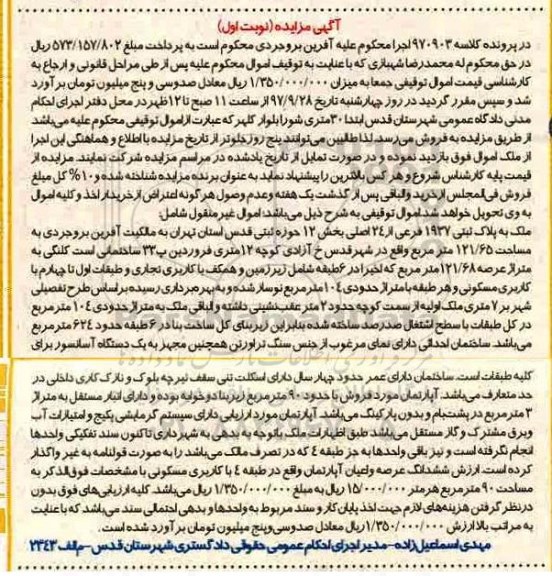 آگهی مزایده (نوبت اول)
در پرونده کلاسه ۹۷۰۹۰۳ اجرا محکوم علیه آفرین بروجردی محکوم است به پرداخت مبلغ ۵۷۳/۱۵۷/۸۰۲ ریال
در حق محکوم له محمدرضا شهبازی که با عنایت به توقیف اموال محکوم علیه پس از طی مراحل قانونی و ارجاع به
کارشناسی قیمت اموال توقیفی جمعا به میزان ۱/۳۵۰/۰۰۰/۰۰۰ ریال معادل صدوسی و پنج میلیون تومان برآورد
شد و سپس مقرر گردید در روز چهارشنبه تاریخ ۹۷/۹/۲۸ از ساعت ۱۱ صبح تا ۱۲ ظهر در محل دفتر اجرای احکام
مدنی دادگاه عمومی شهرستان قدس ابتدا ۳۰ متری شورا بلوار کلهر که عبارت از اموال توقیفی محکوم علیه می‌باشد
از طریق مزایده به فروش می‌رسد. لذا طالبین می‌توانند پنج روز جلوتر از تاریخ مزایده با اطلاع و هماهنگی این اجرا
از ملک اموال فوق بازدید نموده و در صورت تمایل از تاریخ یادشده در مراسم مزایده شرکت نمایند. مزایده از
قیمت پایه کارشناس شروع و هر کس بالاترین را پیشنهاد نماید به عنوان برنده مزایده شناخته شده و ۱۰% کل مبلغ
فروش فی‌المجلس از خرید والباقی پس از گذشت یک هفته و عدم وصول هر گونه اعتراض از خریدار اخذ و کلیه اموال
به وی تحویل خواهد شد. اموال توقیفی به شرح ذیل می‌باشد: اموال غیر منقول شامل:
ملک به پلاک ثبتی ۱۹۳۷ فرعی از ۲۴ اصلی بخش ۱۲ حوزه ثبتی قدس استان تهران به مالکیت آفرین بروجردی به
مساحت ۱۲۱/۶۵ متر مربع واقع در شهر قدس خ آزادی کوچه ۱۲ متری فروردین پ ۳۳ ساختمانی است کلنگی به
متراژ عرصه ۱۲۱/۶۸ متر مربع که اخیرا در ۶ طبقه شامل زیرزمین و همکف با کاربری تجاری و طبقات اول تا چهارم با
کاربری مسکونی و هر طبقه با متراژ حدودی ۱۰۴ متر مربع نوساز شده و به بهره‌برداری رسیده بر اساس طرح تفصیلی
شهر بر ۷ متری ملک اولیه از سمت کوچه حدود ۲ متر عقب‌نشینی داشته و الباقی ملک به متراژ حدودی ۱۰۴ متر مربع
در کل طبقات با سطح اشتغال صددرصد ساخته شده بنابراین زیربنای کل ساخت بنا در ۶ طبقه حدود ۶۲۴ متر مربع
می‌باشد. ساختمان احداثی دارای نمای مرغوب از جنس سنگ تراورتن همچنین مجهز به یک دستگاه آسانسور برای
کلیه طبقات است. ساختمان دارای عمر حدود چهار سال دارای اسکلت تنی سقف تیرچه بلوک و نازک کاری داخلی در
حد متعارف می‌باشد. آپارتمان مورد فروش با حدود ۹۰ متر مربع زیربنا دو خوابه بوده و دارای انبار مستقل به متراژ
۳ متر مربع در پشت‌بام و بدون پارکینگ می‌باشد. آپارتمان مورد ارزیابی دارای سیستم گرمایشی پکیج و امتیازات آب
و برق مشترک و گاز مستقل می‌باشد. طبق اظهارات ملک باتوجه به بدهی به شهرداری تاکنون سند تفکیکی واحدها
انجام نگرفته است و نیز باقی واحدها به جز طبقه ۴ که در تصرف مالک می‌باشد را به صورت قولنامه به غیر واگذار
کرده است. ارزش ششدانگ عرصه واعیان آپارتمان واقع در طبقه ۴ با کاربری مسکونی با مشخصات فوق‌الذکر به
مساحت ۹۰ متر مربع هر متر ۱۵/۰۰۰/۰۰۰ ریال به مبلغ ۱/۳۵۰/۰۰۰/۰۰۰ ریال می‌باشد. کلیه ارزیابی‌های فوق بدون
در نظر گرفتن هزینه‌های لازم جهت اخذ پایان کار و سند مربوط به واحدها و بدهی احتمالی سند می‌باشد که با عنایت
به مراتب بالا ارزش ۱/۳۵۰/۰۰۰/۰۰۰ ریال معادل صدوسی‌وپنج میلیون تومان برآورد شده است.
مهدی اسماعیل‌زاده - مدیر اجرای احکام عمومی حقوقی دادگستری شهرستان قدس - م‌الف ۲۳۴۳